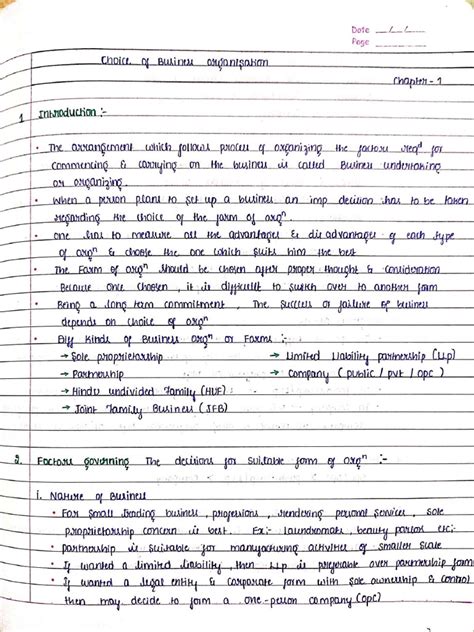 Date __/__/__
Page ______
Choice of Business organisation
Chapter - 1
1 Introduction :-
• The arrangement which follows process of organizing the factors reqd for
commencing & carrying on the business is called Business undertaking
or organizing.
• When a person plans to set up a business an imp decision has to be taken
regarding the choice of the form of orgn.
• One has to measure all the advantages & disadvantages of each type
of orgn & choose the one which suits him the best
• The Form of orgn should be chosen after proper thought & consideration
Because once chosen, it is difficult to switch over to another form
• Being a long term commitment, The success or failure of business
depends on choice of orgn
• Diff Kinds of Business orgn or Forms :-
→ Sole proprietorship → Limited Liability partnership (LLp)
→ Partnership → Company ( public / pvt / opc )
→ Hindu undivided Family (HUF)
→ Joint Family Business (JFB)
2. Factors governing The decisions for suitable form of orgn :-
i. Nature of Business
• For small trading business, professions, rendering personal services, sole
proprietorship concern is best. Ex:- laundromats, beauty parlor etc:-
• partnership is suitable for manufacturing activities of smaller scale
• If wanted a limited liability, then LLp is preferable over partnership form
• If wanted a legal entity & corporate form with sole ownership & control
then may decide to form a one-person company (opc)